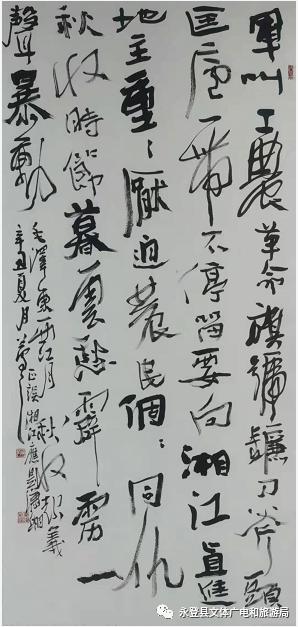 軍叫工農革命旗號鐮刀斧頭
匡廬一帶不停留要向湘江直進
地主重〻壓迫農民個〻同仇
秋收時節暮雲愁霹靂一
聲暴動
毛澤東西江月 秋收起義
辛丑夏月
正誤湘江應是瀟湘
永登县文体广电和旅游局